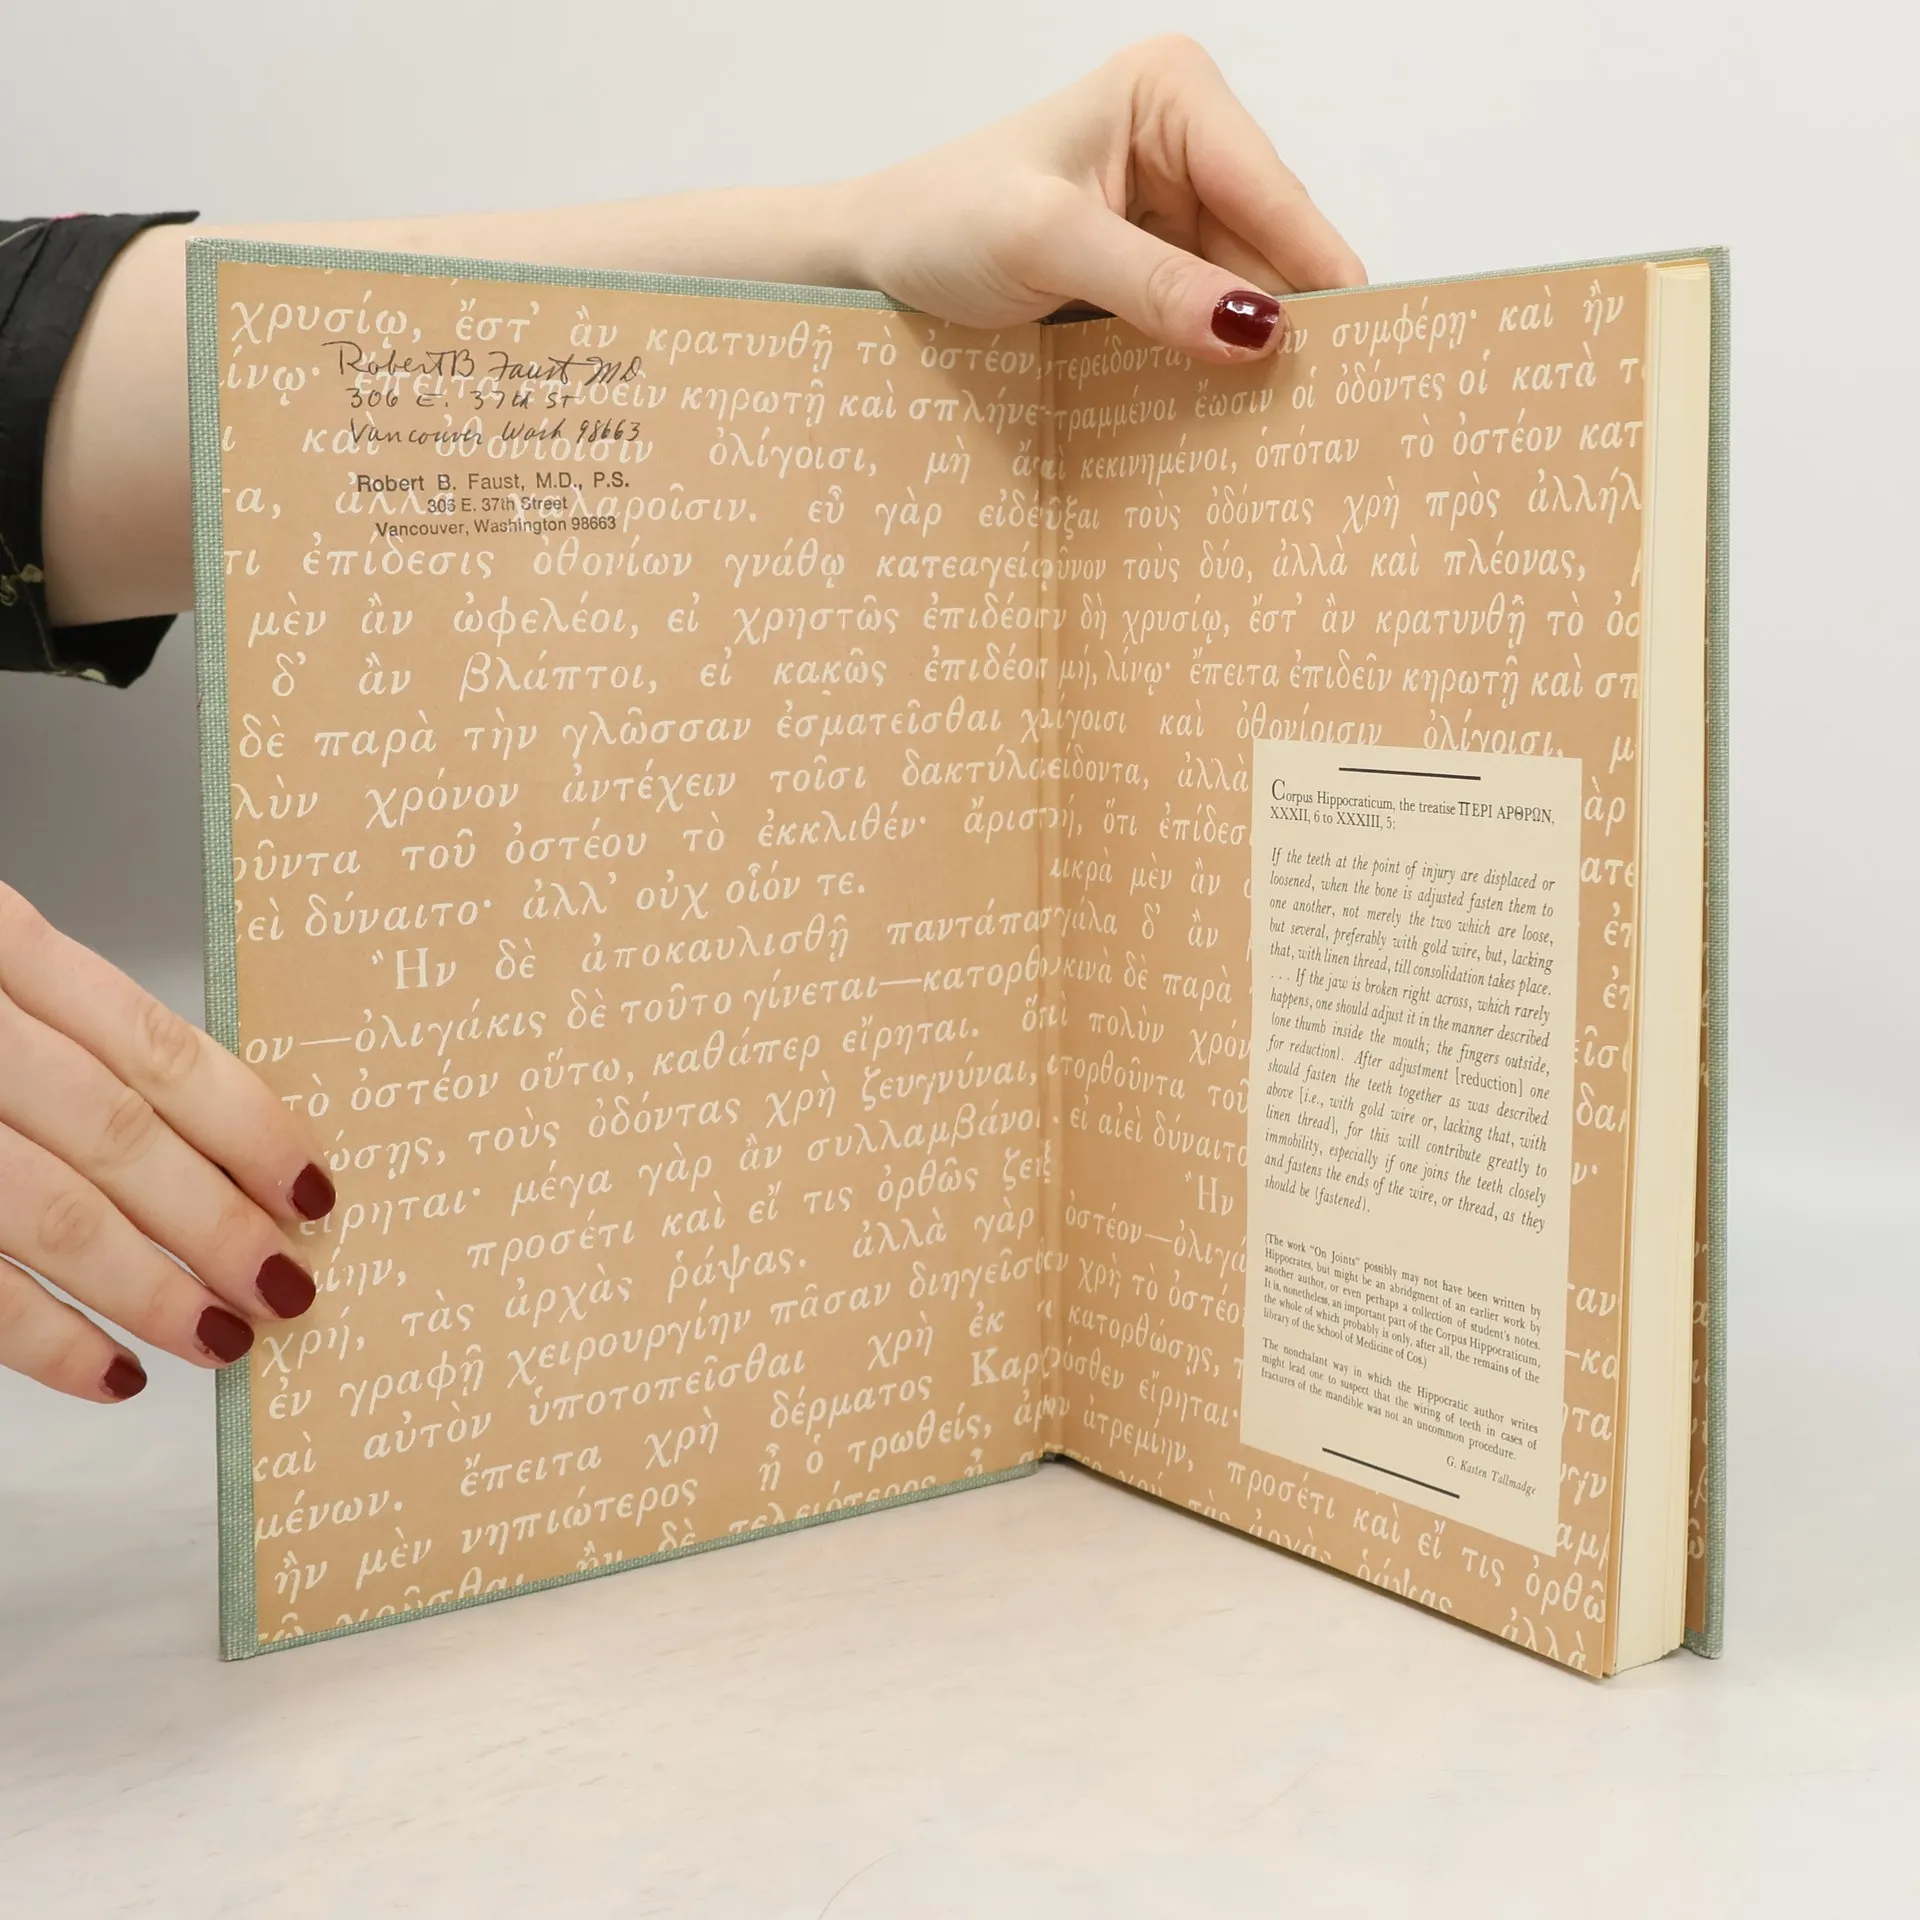 χρυσίῳ, ἔστ' ἂν κρατυνθῇ τὸ ὀστέον,
Robert B Faust MD
ίνῳ· ἔπειτα ἐπιδεῖν κηρωτῇ καὶ σπλήνε-
306 E. 37th St
Vancouver Wash 98663
ι καὶ ὀθονίοισιν ὀλίγοισι, μὴ ἄ
Robert B. Faust, M.D., P.S.
306 E. 37th Street
Vancouver, Washington 98663
τα, ἀλλὰ χαλαροῖσιν. εὖ γὰρ εἰδέ
τι ἐπίδεσις ὀθονίων γνάθῳ κατεαγεί
μὲν ἂν ὠφελέοι, εἰ χρηστῶς ἐπιδέοι
δ' ἂν βλάπτοι, εἰ κακῶς ἐπιδέοι
δὲ παρὰ τὴν γλῶσσαν ἐσματεῖσθαι χ
λὺν χρόνον ἀντέχειν τοῖσι δακτύλο
οῦντα τοῦ ὀστέου τὸ ἐκκλιθέν· ἄριστ
εὶ δύναιτο· ἀλλ' οὐχ οἷόν τε.
Ἢν δὲ ἀποκαυλισθῇ παντάπασ
ον—ὀλιγάκις δὲ τοῦτο γίνεται—κατορθ
τὸ ὀστέον οὕτω, καθάπερ εἴρηται. ὅτ
ώσῃς, τοὺς ὀδόντας χρὴ ζευγνύναι,
εἴρηται· μέγα γὰρ ἂν συλλαμβάνοι
ίην, προσέτι καὶ εἴ τις ὀρθῶς ζεύ
χρή, τὰς ἀρχὰς ῥάψας. ἀλλὰ γὰρ
ἐν γραφῇ χειρουργίην πᾶσαν διηγεῖσ
καὶ αὐτὸν ὑποτοπεῖσθαι χρὴ ἐκ
μένων. ἔπειτα χρὴ δέρματος Καρχ
ἢν μὲν νηπιώτερος ᾖ ὁ τρωθείς, ἀρ
χρῦσθαι, ἢν δὲ τελειότερος ᾖ
τερείδοντα, ἂν συμφέρῃ· καὶ ἢν
τραμμένοι ἔωσιν οἱ ὀδόντες οἱ κατὰ τ
κεκινημένοι, ὁπόταν τὸ ὀστέον κατ
ῦξαι τοὺς ὀδόντας χρὴ πρὸς ἀλλήλ
οῦνον τοὺς δύο, ἀλλὰ καὶ πλέονας,
δὴ χρυσίῳ, ἔστ' ἂν κρατυνθῇ τὸ ὀσ
μή, λίνῳ· ἔπειτα ἐπιδεῖν κηρωτῇ καὶ σπ
ίγοισι καὶ ὀθονίοισιν ὀλίγοισι, μ
είδοντα, ἀλλὰ γὰρ
ή, ὅτι ἐπίδεσι ατε
μικρὰ μὲν ἂν ἐπ
γάλα δ' ἂν ἐπ
κινὰ δὲ παρὰ εῖσ
πολὺν χρόν δακ
τορθοῦντα τοῦ ν·
εἰ αἰεὶ δύναιτο
Ἢν ταν
ὀστέον—ὀλιγά —κα
χρὴ τὸ ὀστέο ηται
κατορθώσῃς, τ γν
ύσθεν εἴρηται· αμ
ἀτρεμίην, προσέτι καὶ εἴ τις ὀρθῶ
χρή, τὰς ἀρχὰς ῥάψας. ἀλλὰ
Corpus Hippocraticum, the treatise ΠΕΡΙ ΑΡΘΡΩΝ,
XXXII, 6 to XXXIII, 5:
If the teeth at the point of injury are displaced or
loosened, when the bone is adjusted fasten them to
one another, not merely the two which are loose,
but several, preferably with gold wire, but, lacking
that, with linen thread, till consolidation takes place.
. . . If the jaw is broken right across, which rarely
happens, one should adjust it in the manner described
(one thumb inside the mouth; the fingers outside,
for reduction). After adjustment [reduction] one
should fasten the teeth together as was described
above [i.e., with gold wire or, lacking that, with
linen thread], for this will contribute greatly to
immobility, especially if one joins the teeth closely
and fastens the ends of the wire, or thread, as they
should be (fastened).
(The work "On Joints" possibly may not have been written by
Hippocrates, but might be an abridgment of an earlier work by
another author, or even perhaps a collection of student's notes.
It is, nonetheless, an important part of the Corpus Hippocraticum,
the whole of which probably is only, after all, the remains of the
library of the School of Medicine of Cos.)
The nonchalant way in which the Hippocratic author writes
might lead one to suspect that the wiring of teeth in cases of
fractures of the mandible was not an uncommon procedure.
G. Kasten Tallmadge